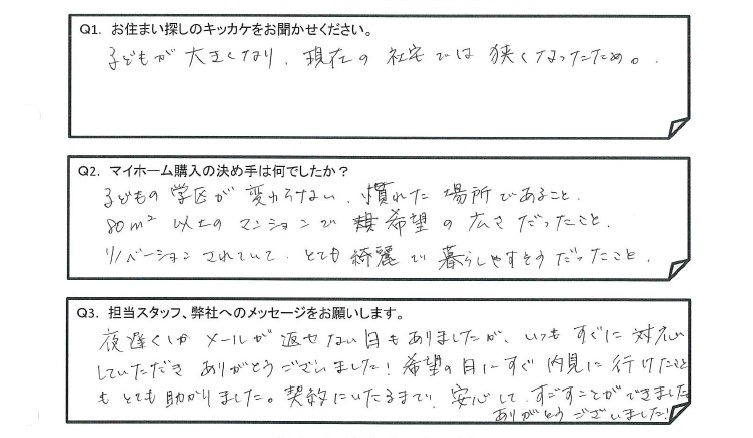 Q1. お住まい探しのキッカケをお聞かせください。
子どもが 大きくなり、現在の 社宅では 狭くなったため。
Q2. マイホーム購入の決め手は何でしたか?
子どもの 学区が 変わらない、慣れた 場所であること、
80m² 以上の マンションで 希望の 広さ だったこと、
リノベーション されていて、とても 綺麗で 暮らしやすそうだったこと、
Q3. 担当スタッフ、弊社へのメッセージをお願いします。
夜遅くしか メールが 返せない日もありましたが、いつも すぐに 対応
していただき ありがとうございました!希望の日にすぐ 内見に 行けたこと
も とても 助かりました。契約にいたるまで、安心して すごすことができました
ありがとう ございました!